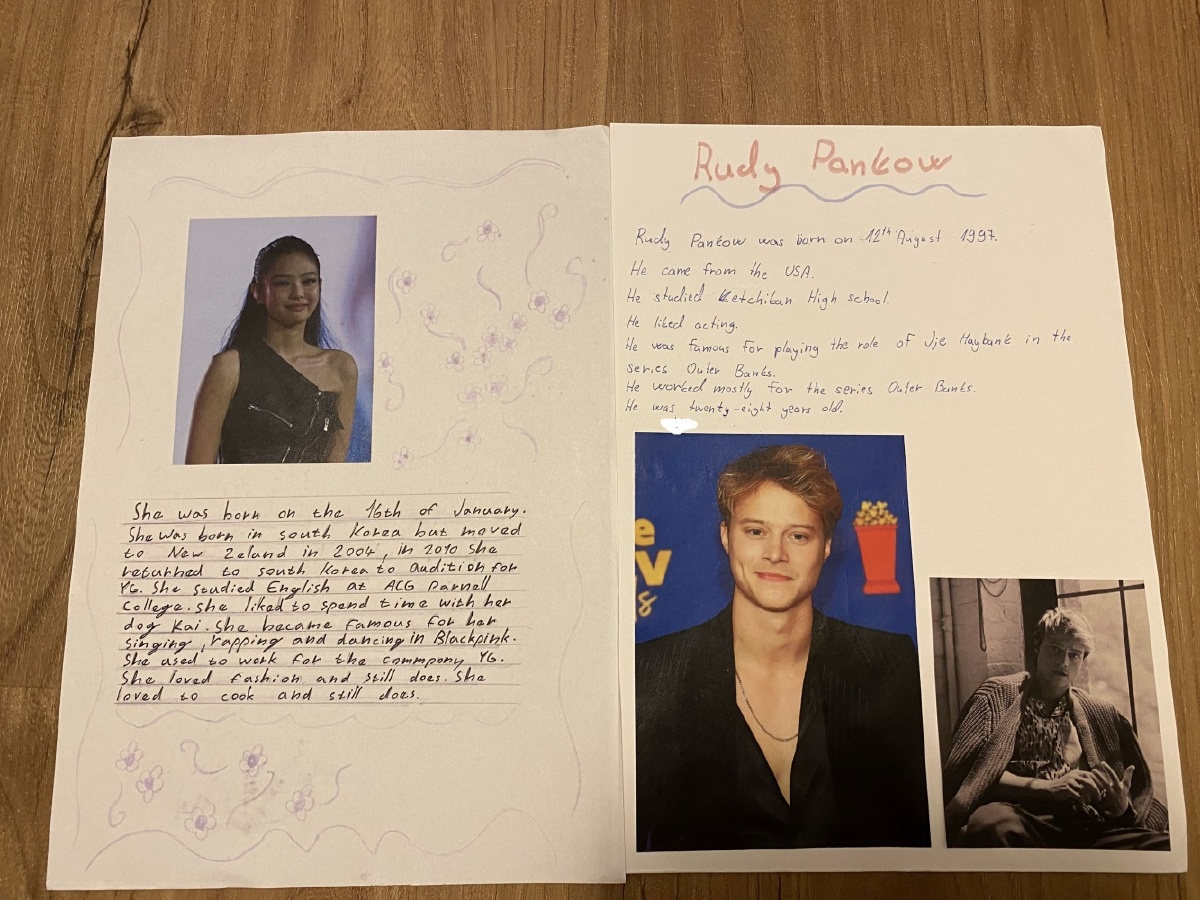 She was born on the 16th of January.
She was born in south Korea but moved
to New Zeland in 2004, in 2010 she
returned to south Korea to audition for
YG. She studied English at ACG Parnell
College. She liked to spend time with her
dog Kai. She became famous for her
singing, rapping and dancing in Blackpink.
She used to work for the commpony YG.
She loved fashion and still does. She
loved to cook and still does.
Rudy Pankow
Rudy Pankow was born on 12th August 1997.
He came from the USA.
He studied Ketchikan High school.
He liked acting.
He was famous for playing the role of Jje Maybank in the
series Outer Banks.
He worked mostly for the series Outer Banks.
He was twenty-eight years old.